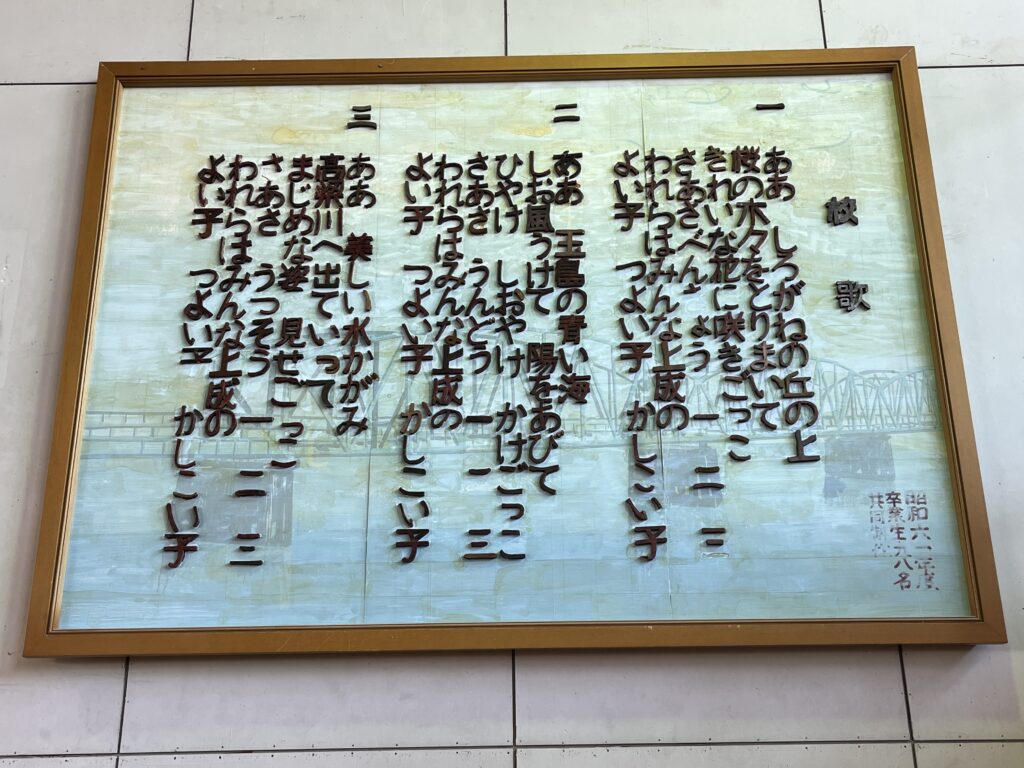 校歌
一
ああ しろがねの丘の上
桜の木々をとりまいて
きれいな花に咲きごっこ
さあさ べんきょう 一 二 三
われらはみんな上成の
よい子 つよい子 かしこい子
二
ああ 玉島の青い海
しお風うけて 陽をあびて
ひやけ しおやけ かけごっこ
さあさ うんどう 一 二 三
われらはみんな上成の
よい子 つよい子 かしこい子
三
ああ 美しい水かがみ
高梁川へ出ていって
まじめな姿 見せごっこ
さあさ うつそう 一 二 三
われらはみんな上成の
よい子 つよい子 かしこい子
昭和六一年度
卒業生九八名
共同制作